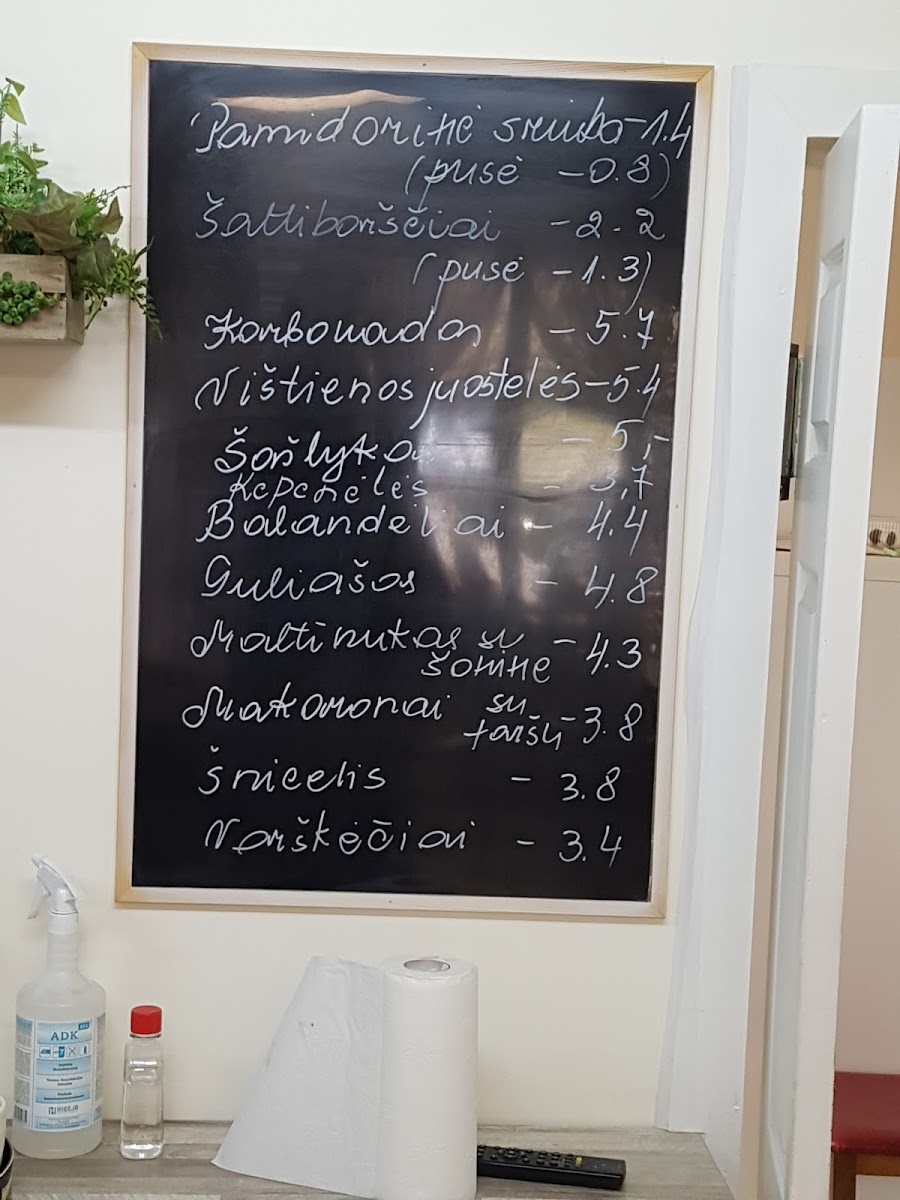 Pamidorinė sriuba-1.4
(pusė -0.8)
Šaltiborščiai -2.2
(pusė -1.3)
Karbonadas -5.7
Vištienos juostelės-5.4
Šašlykas - 5,-
Kepenėlės - 3,7
Balandėliai - 4.4
Guliašas - 4.8
Maltinukas su -4.3
šonine
Makaronai su
faršu -3.8
Šnicelis - 3.8
Varškėčiai - 3.4
ADK